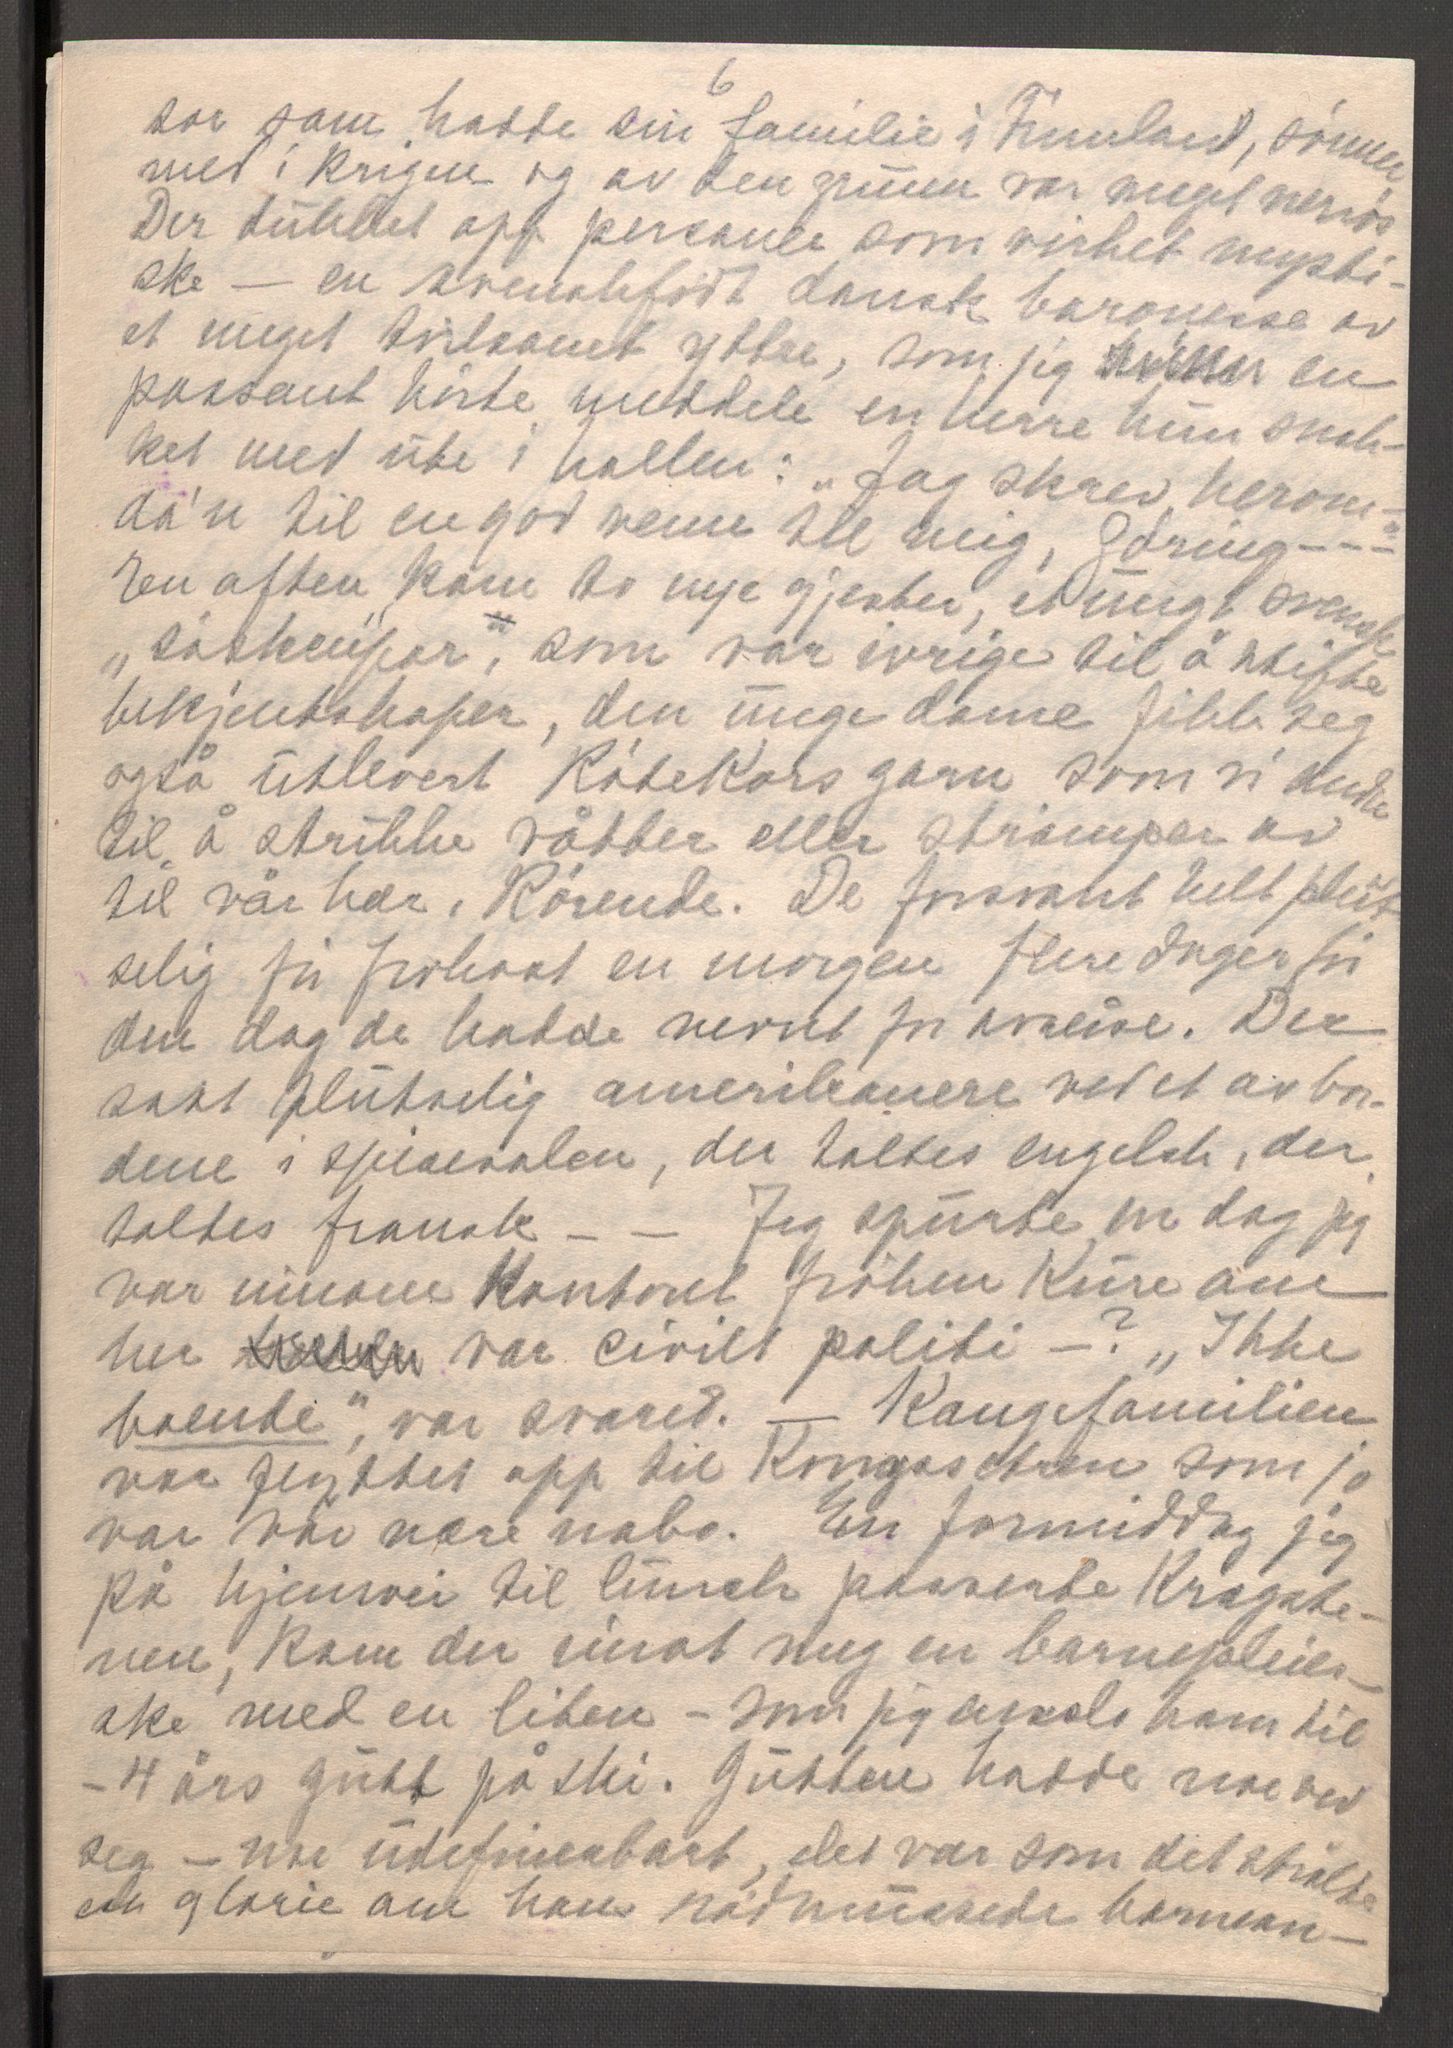 6
sør som hadde sin familie i Finnland, sönnen
med i krigen og av den grunn var meget nervös
Der dukket opp personer som virket mysti-
ske — en svenskfödt dansk baronesse av
et meget tvilsomt ytre, som jeg en
passant hörte meddele en herre hun snak-
ket med ute i hallen: „Jag skrev herom-
da'n til en god venn till mig, Göring---"
En aften kom to nye gjester, et ungt svensk
„söskenpar", som var ivrige til å stifte
bekjentskaper, den unge dame fikk seg
også utlevert RödeKors garn som vi andre
til å strikke våtter eller strömper av
til vår hær. Rörende. De forsvant helt plut
selig för frokost en morgen flere dager för
den dag de hadde nevnt for avreise. Der
satt plutselig amerikanere ved et av bor-
dene i spisesalen, der taltes engelsk, der
taltes fransk — — Jeg spurte en dag jeg
var innom Kontoret fröken Kure om
her var civilt politi —? „Ikke
boende", var svaret. — Kongefamilien
var flyttet opp til Kongssetren som jo
var vår nære nabo. En formiddag jeg
på hjemvei til lunch passerte Kragstö-
nen, kom der imot meg en barnepleier-
ske med en liten — som jeg anslo ham til
— 4 års gutt på ski. Gutten hadde noe ved
seg — noe udefinerbart, det var som det strålte
en glorie om hans rödmussede barnean-